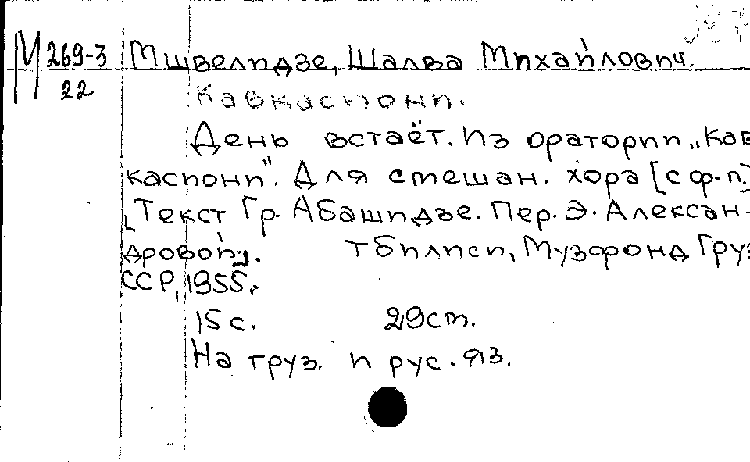 М 269-3 Мшвелидзе, Шалва Михайлович.
22
Кавкасиони.
День встаёт. Из оратории „Кав
касиони". Для смешан. хора [с ф.-п.]
[Текст Гр. Абашидзе. Пер. Э. Алексан-
дровой]. Тбилиси, Музфонд Груз
ССР, 1955.
15 с. 29 см.
На груз. и рус. яз.